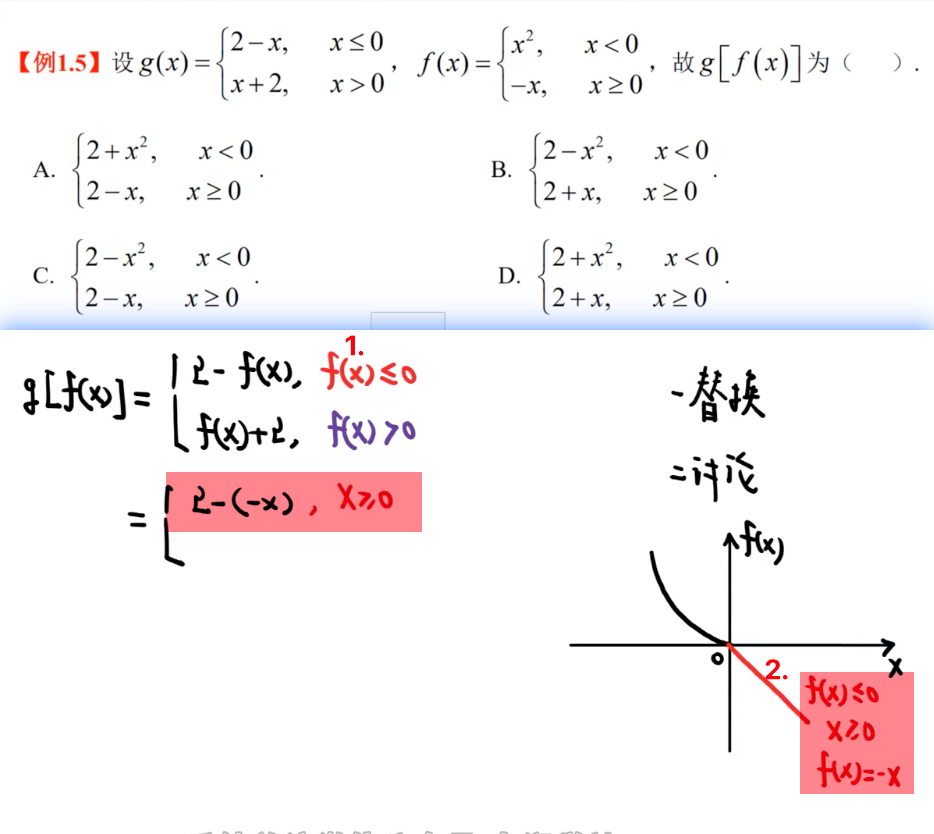 【例1.5】设 g(x) = { 2-x, x≤0 ; x+2, x>0 , f(x) = { x², x<0 ; -x, x≥0 , 故 g[f(x)] 为 ( ).
A. { 2+x², x<0 ; 2-x, x≥0 .
B. { 2-x², x<0 ; 2+x, x≥0 .
C. { 2-x², x<0 ; 2-x, x≥0 .
D. { 2+x², x<0 ; 2+x, x≥0 .
1.
g[f(x)] = { 2-f(x), f(x)≤0
f(x)+2, f(x)>0
= { 2-(-x), x≥0
一替换
二讨论
f(x)
0
x
2.
f(x)≤0
x≥0
f(x)=-x